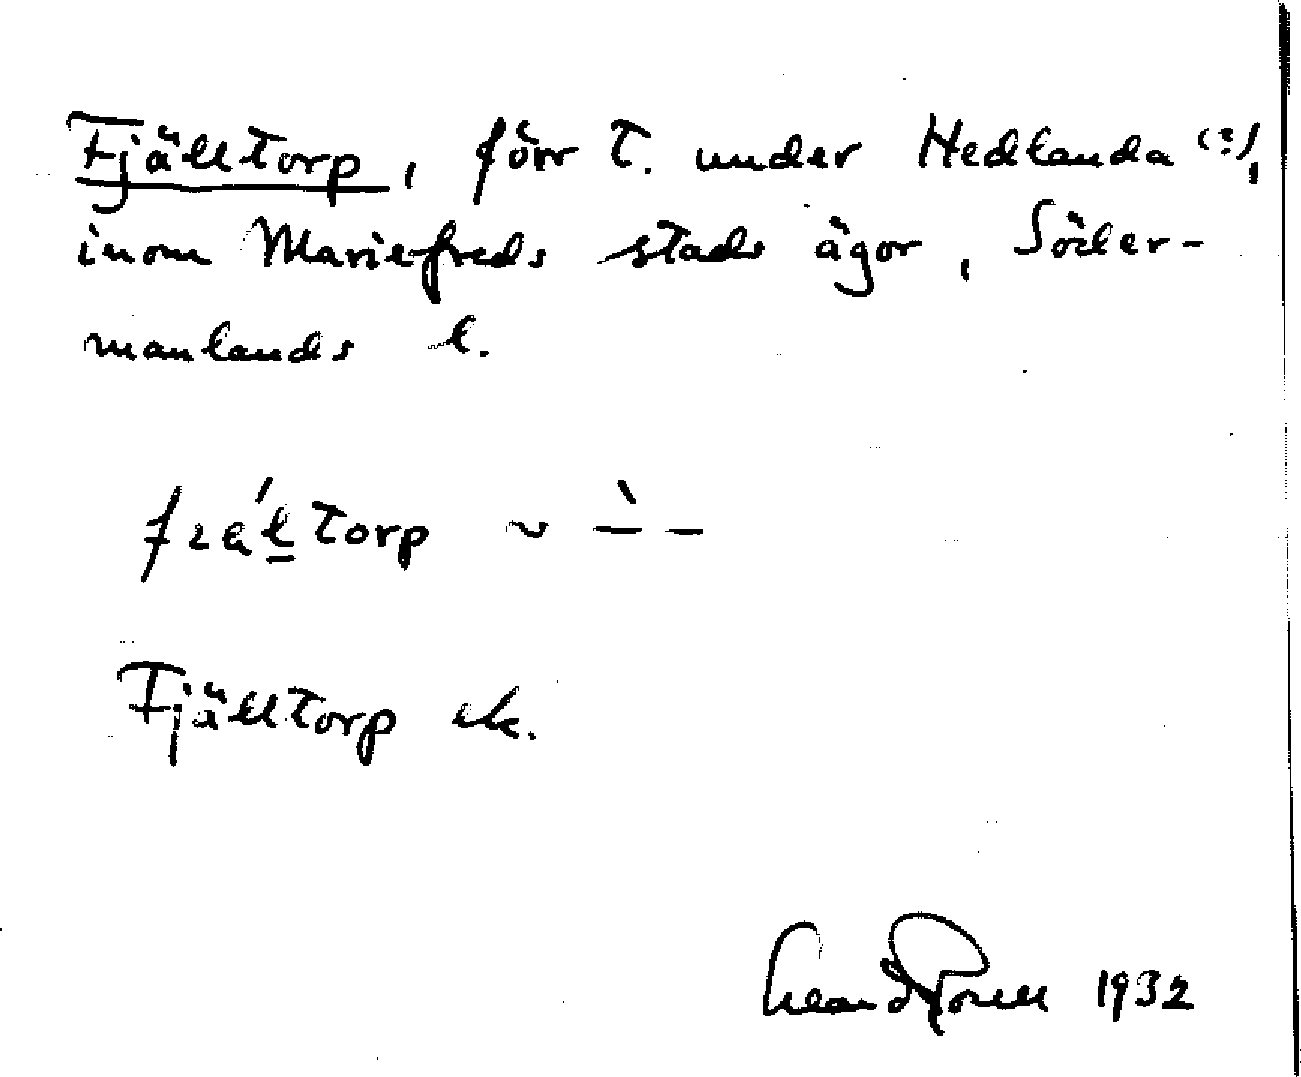 Fjälltorp, förr t. under Hedlanda (?),
inom Mariefreds stads ägor, Söder-
manlands l.
Fjälltorp ek.
1932